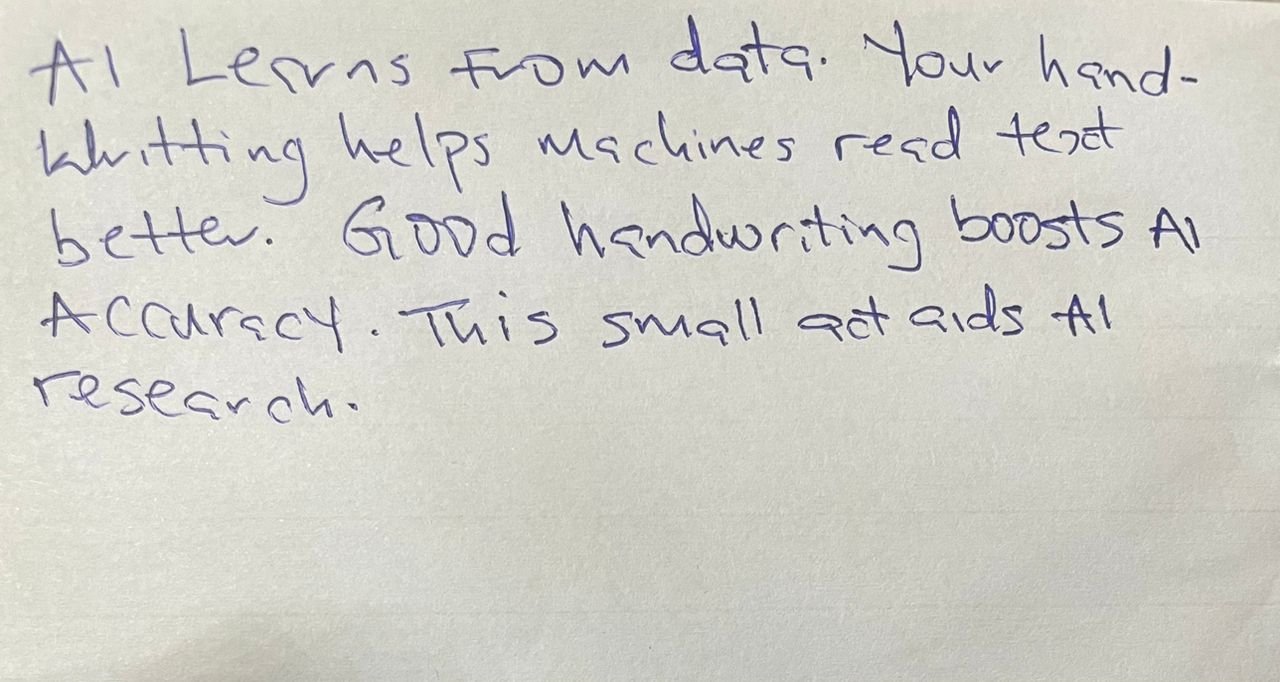 AI Learns From data. Your hand-
Whritting helps machines read text
better. Good handwriting boosts AI
Accuracy. This small act aids AI
research.